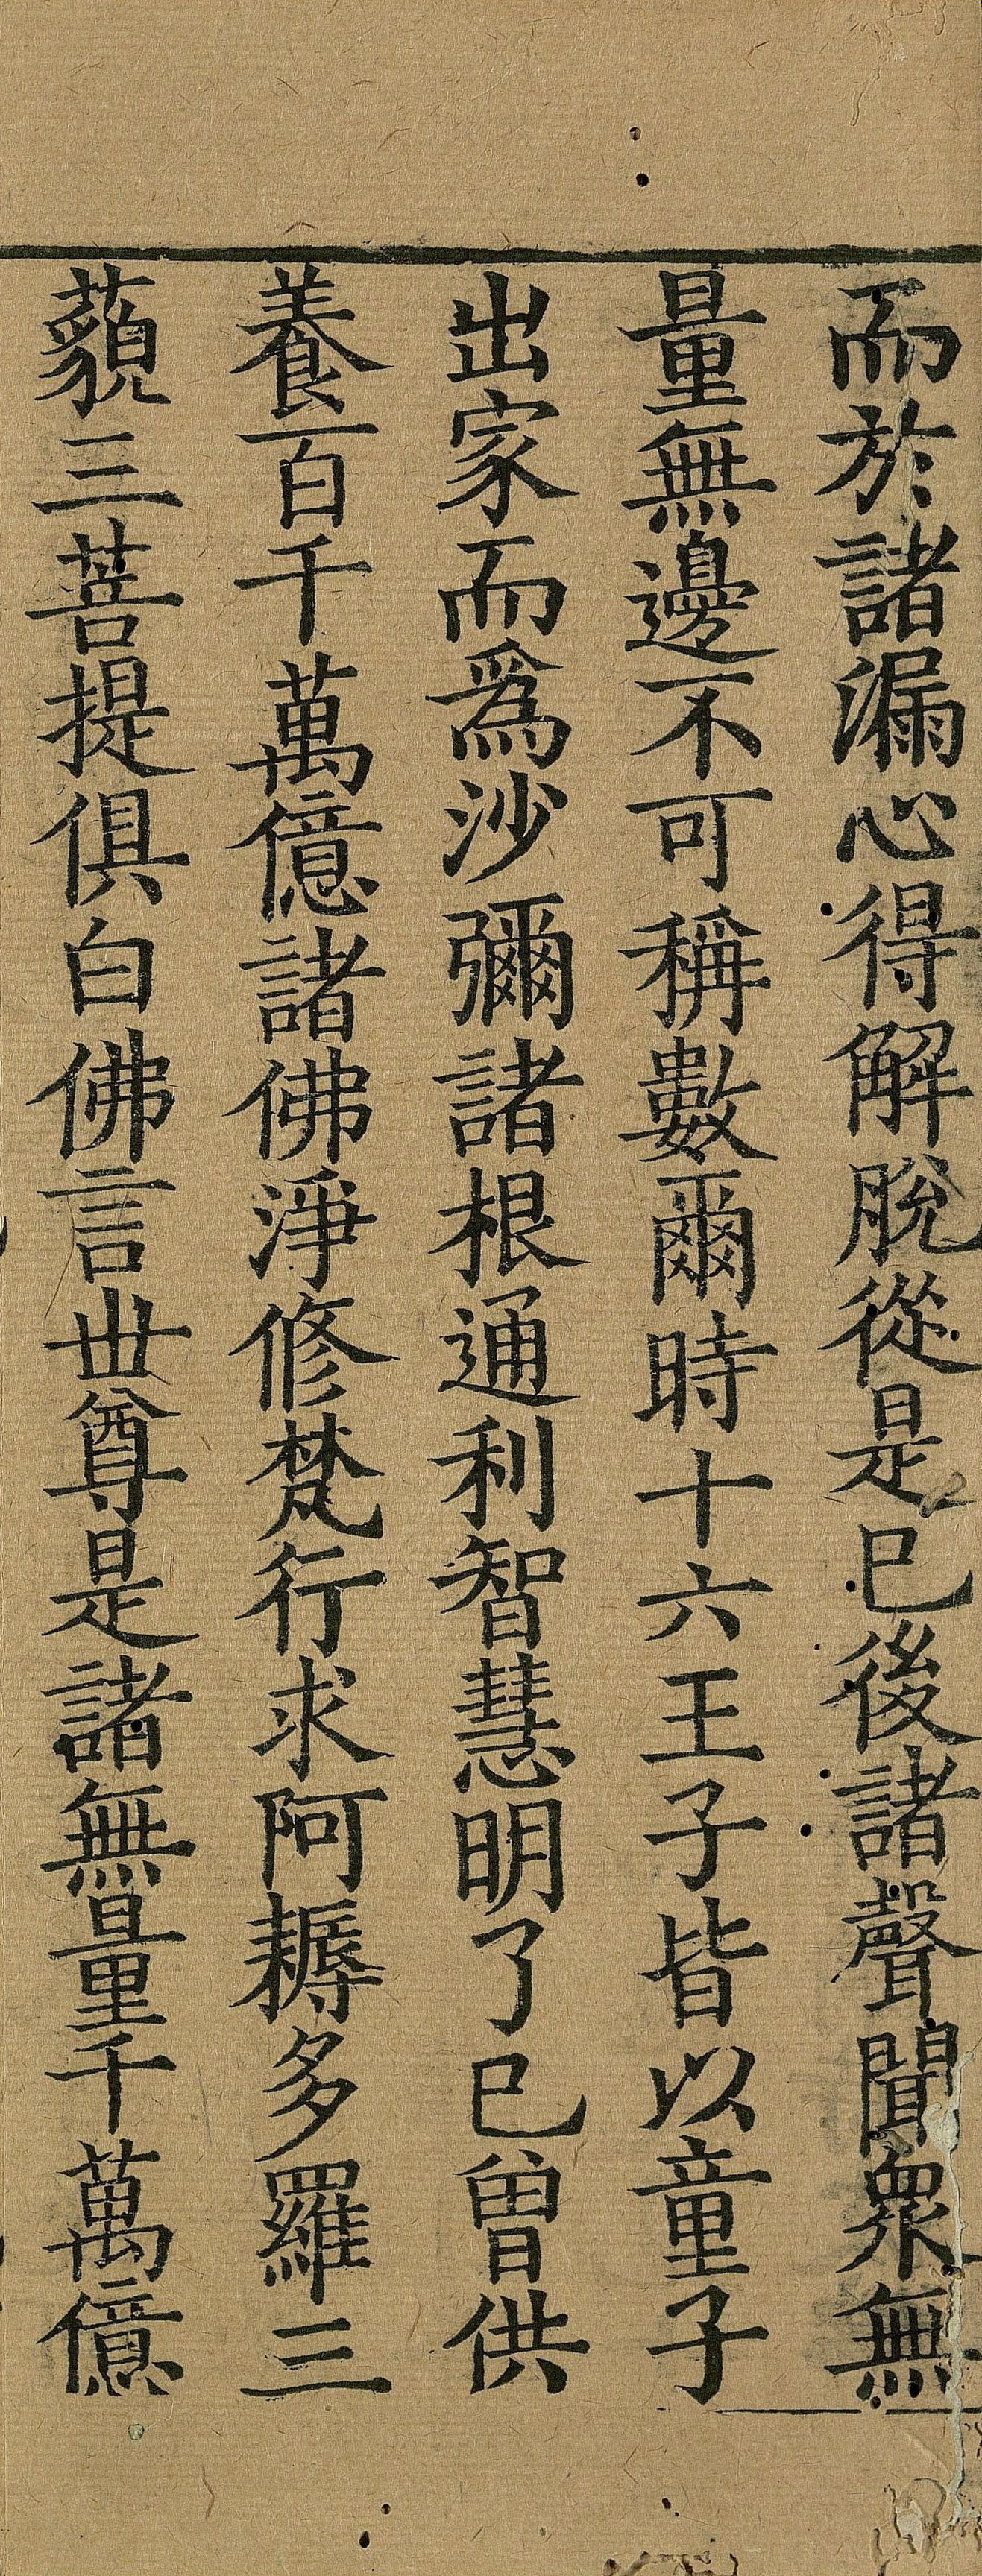 而於諸漏心得解脫從是已後諸聲聞衆無
量無邊不可稱數爾時十六王子皆以童子
出家而爲沙彌諸根通利智慧明了已曾供
養百千萬億諸佛淨修梵行求阿耨多羅三
藐三菩提俱白佛言世尊是諸無量千萬億